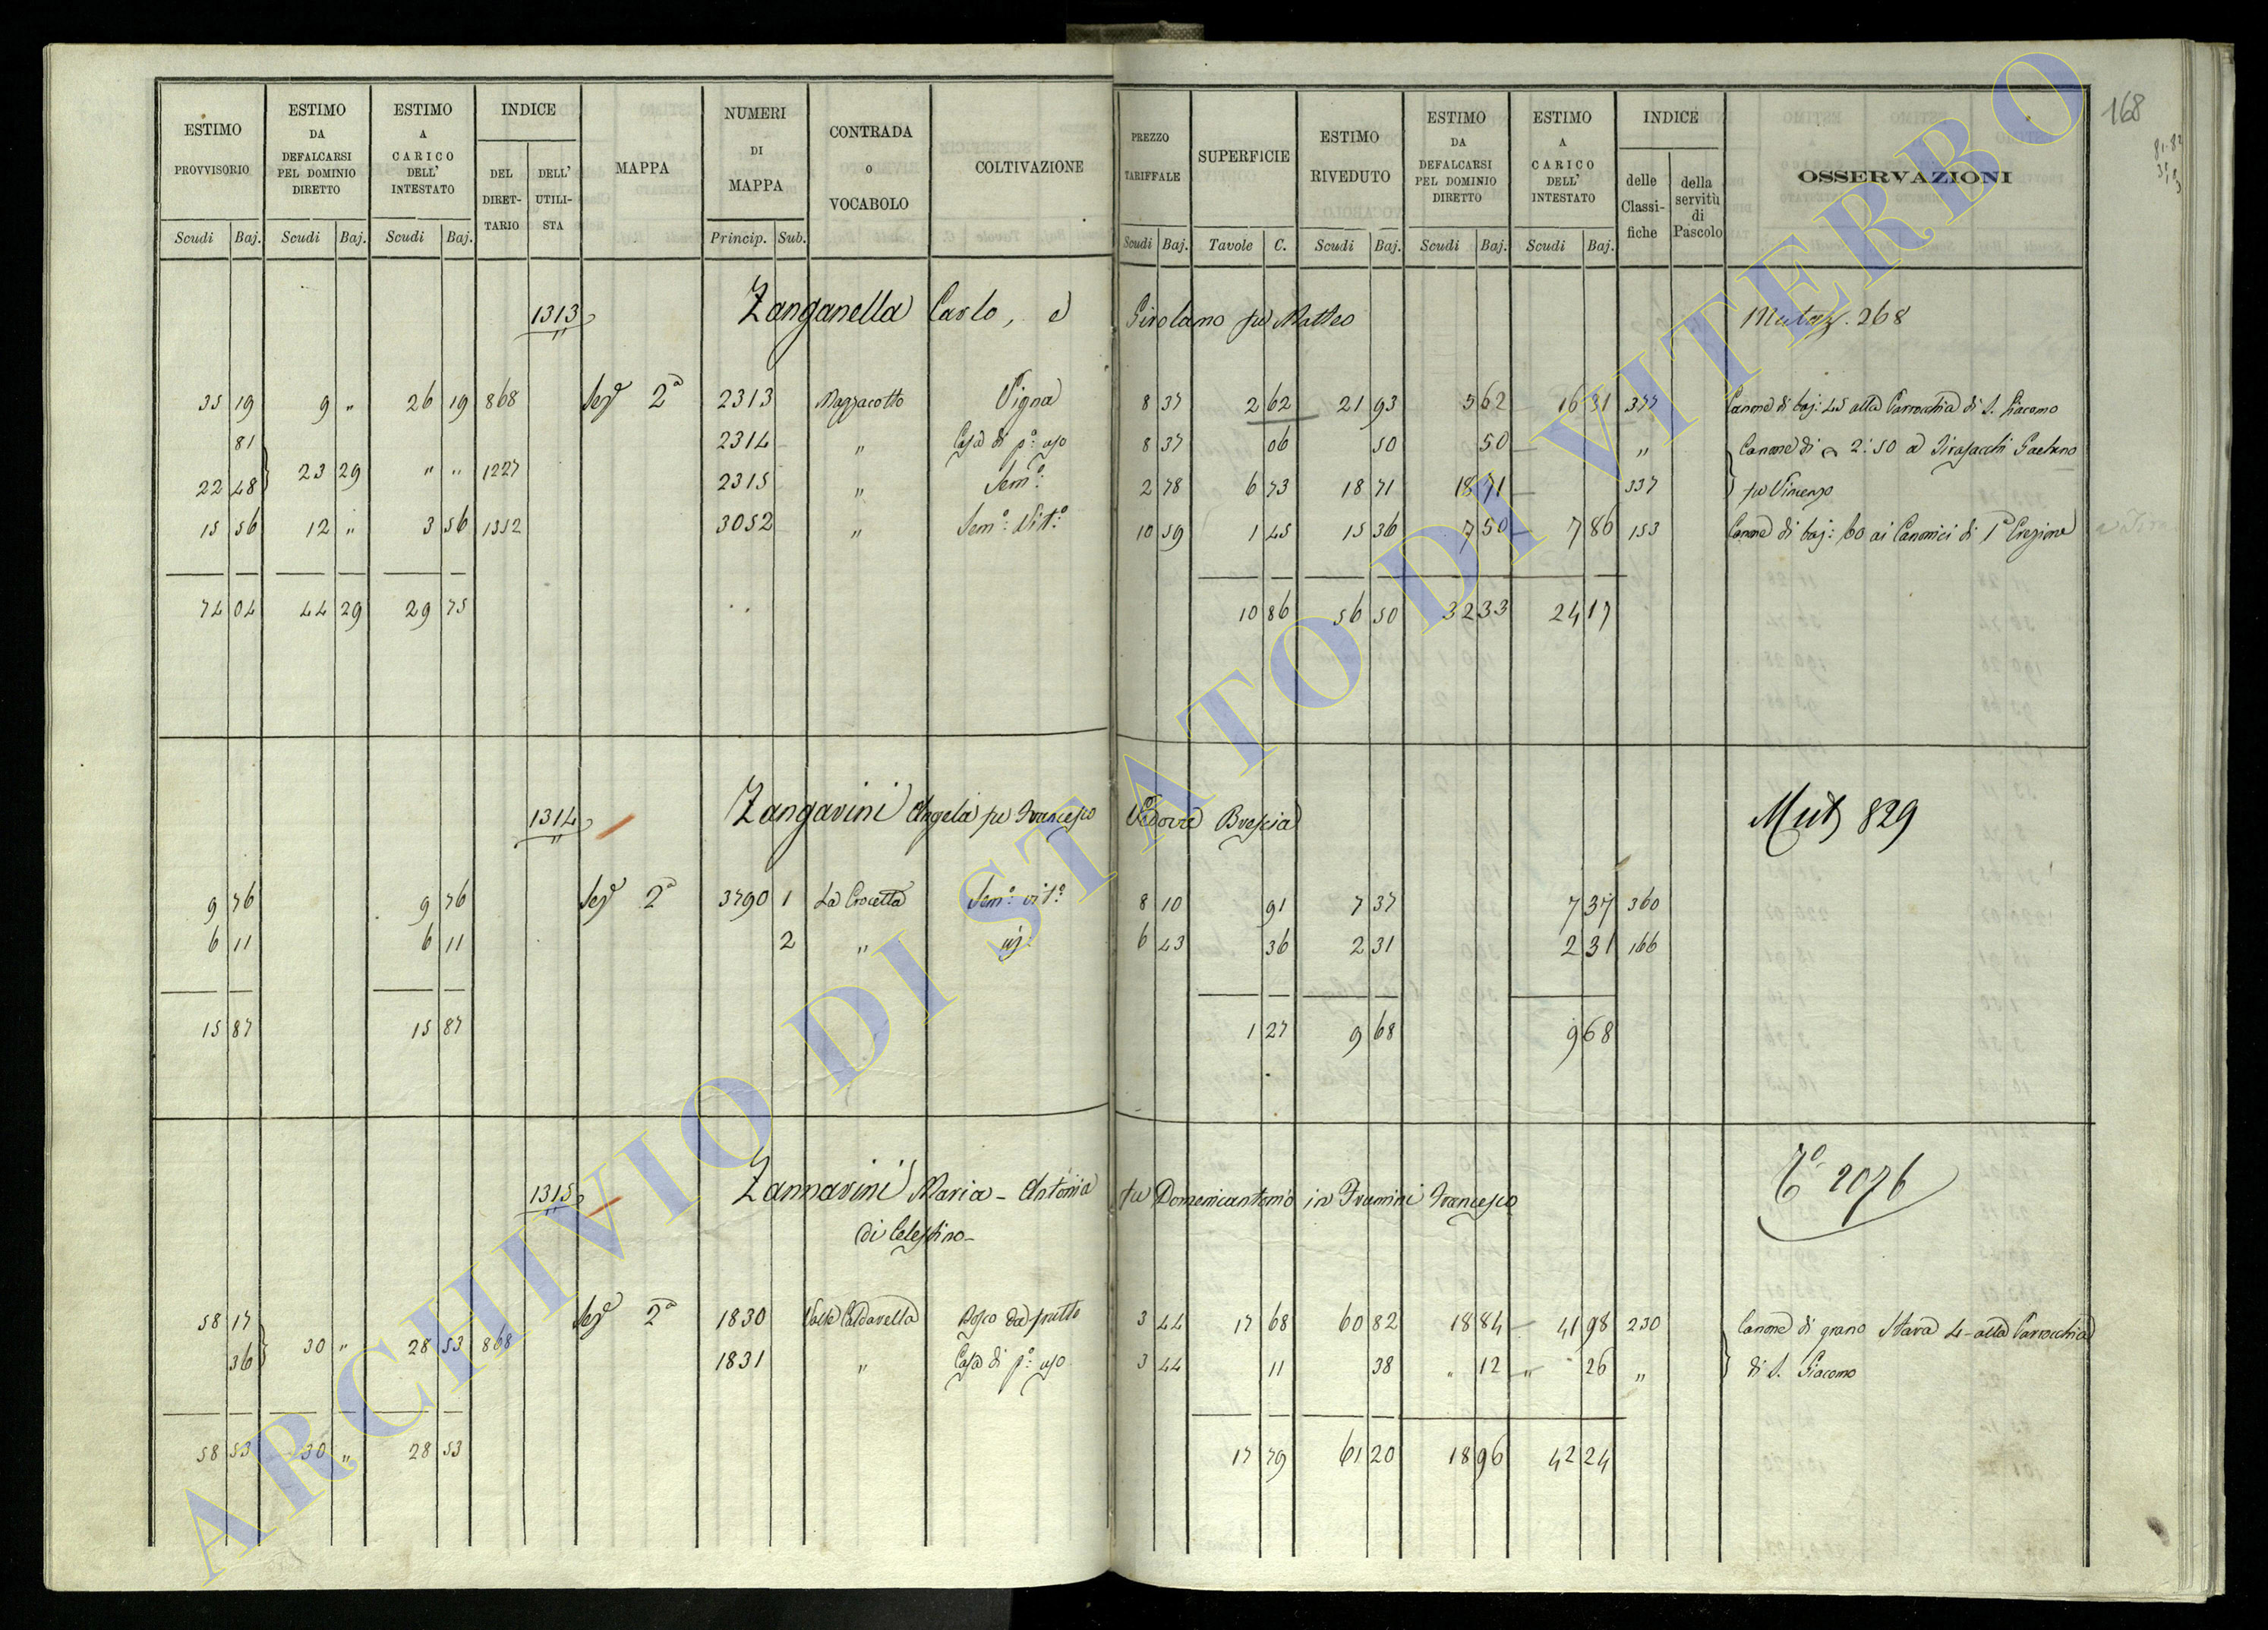 168
81-82
ESTIMO PROVVISORIO | ESTIMO DA DEFALCARSI PEL DOMINIO DIRETTO | ESTIMO A CARICO DELL' INTESTATO | INDICE | MAPPA | NUMERI DI MAPPA | CONTRADA O VOCABOLO | COLTIVAZIONE | PREZZO TARIFFALE | SUPERFICIE | ESTIMO RIVEDUTO | ESTIMO DA DEFALCARSI PEL DOMINIO DIRETTO | ESTIMO A CARICO DELL' INTESTATO | INDICE | OSSERVAZIONI
DEL DIRET-TARIO | DELL' UTILI-STA | delle Classi-fiche | della servitù di Pascolo
Scudi | Baj. | Scudi | Baj. | Scudi | Baj. | Princip. | Sub. | Scudi | Baj. | Tavole | C. | Scudi | Baj. | Scudi | Baj. | Scudi | Baj.
1313 Zanganella Carlo, e Girolamo fu Matteo Mutaz. 268
35 19 9 " 26 19 868 Sez.e 2a 2313 Mazzacotto Vigna 8 37 2 62 21 93 5 62 16 31 377 Canone di baj: 45 alla Parrocchia di S. Giacomo
81 2314 " Casa di p.o uso 8 37 06 50 50 " Canone di 2:50 a Tirasacchi Gaetano
22 48 23 29 " " 1227 2315 " Sem.o 2 78 6 73 18 71 18 71 337 fu Vincenzo
15 56 12 " 3 56 1352 3052 " Sem.o Vit.o 10 59 1 45 15 36 7 50 7 86 153 Canone di baj: 60 ai Canonici di 1a Erezione
74 04 44 29 29 75 10 86 56 50 32 33 24 17
1314 Zangarini Angela fu Francesco Vedova Brescia Mut 829
9 76 9 76 Sez.e 2a 3790 1 La Crocetta Sem.o vit.o 8 10 91 7 37 7 37 360
6 11 6 11 2 " id. 6 43 36 2 31 2 31 166
15 87 15 87 1 27 9 68 9 68
1315 Zannarini Maria-Antonia fu Domenicantonio in Framini Francesco To 2076
di Celestino
58 17 30 " 28 53 868 Sez.e 2a 1830 Valle Caldarella Bosco da frutto 3 44 17 68 60 82 18 84 41 98 230 Canone di grano Stara 4 alla Parrocchia
36 1831 " Casa di p.o uso 3 44 11 38 " 12 " 26 " di S. Giacomo
58 53 30 " 28 53 17 79 61 20 18 96 42 24
ARCHIVIO DI STATO DI VITERBO